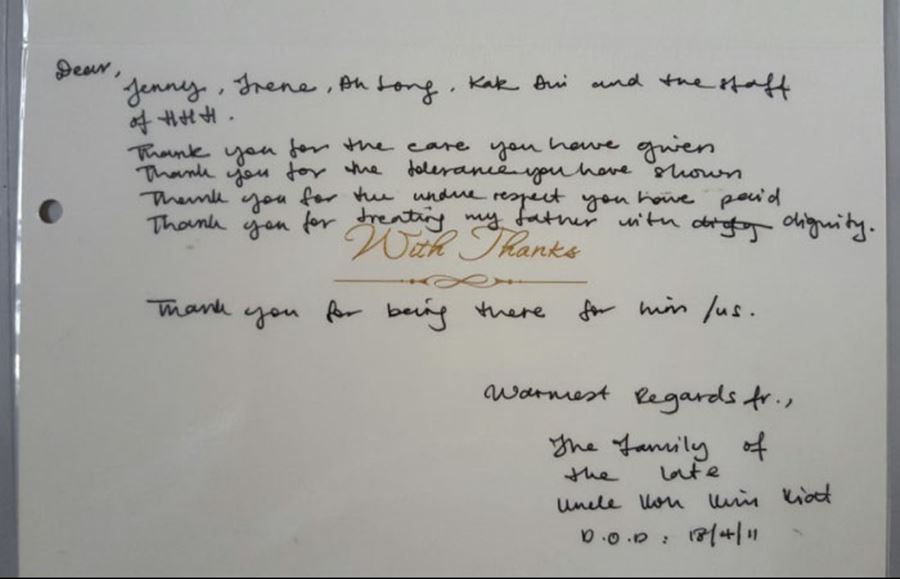 Dear,
Jenny, Irene, Ah Long, Kak Ani and the staff
of HHH.
Thank you for the care you have given
Thank you for the tolerance you have shown
Thank you for the undue respect you have paid
Thank you for treating my father with dignity.
With Thanks
Thank you for being there for him/us.
Warmest Regards fr.,
The Family of
the late
Uncle Koh Kim Kiat
D.O.D: 13/4/11